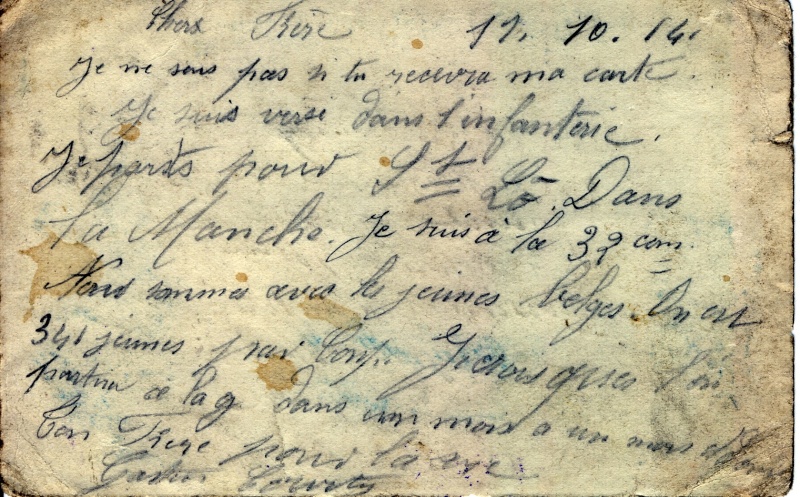 Chers Frère 11. 10. 14.
Je ne sais pas si tu recevra ma carte.
Je suis versé dans l'infanterie.
Je parts pour St Lô. Dans
la Manche. Je suis à la 32 com.
Nous sommes avec les jeunes belges. On est
34 jeunes par Comp. Je crois que
partir à la g dans un mois a un mois
Ton Frere pour la vie
Gaston